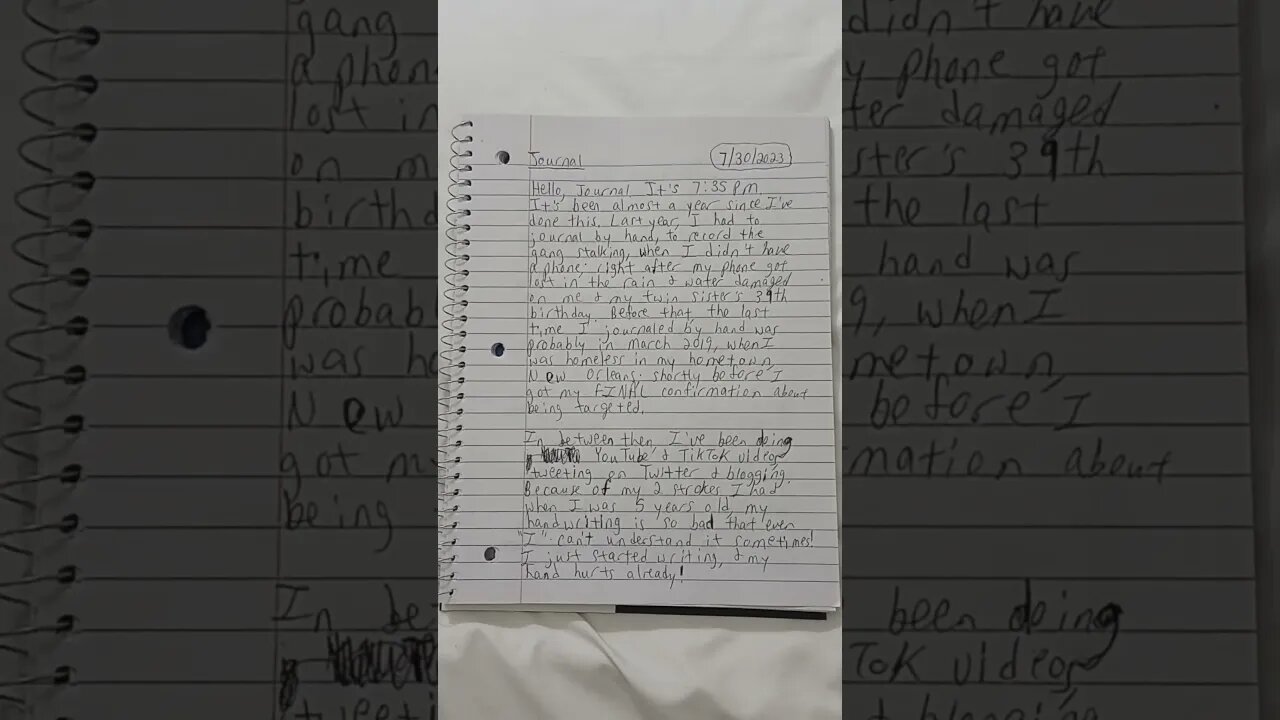 Journal 7/30/2023
Hello, Journal It's 7:35 pm.
It's been almost a year since I've
done this. Last year, I had to
journal by hand, to record the
gang stalking, when I didn't have
a phone; right after my phone got
lost in the rain & water damaged
on me & my twin sister's 39th
birthday. Before that, the last
time I journaled by hand was
probably in march 2019, when I
was homeless in my hometown,
New Orleans; shortly before I
got my FINAL confirmation about
being targeted.
In between then, I've been doing
YouTube & TikTok videos
tweeting on Twitter & blogging.
Because of my 2 strokes I had
when I was 5 years old, my
handwriting is so bad that even
"I" can't understand it sometimes!
I just started writing, & my
hand hurts already!